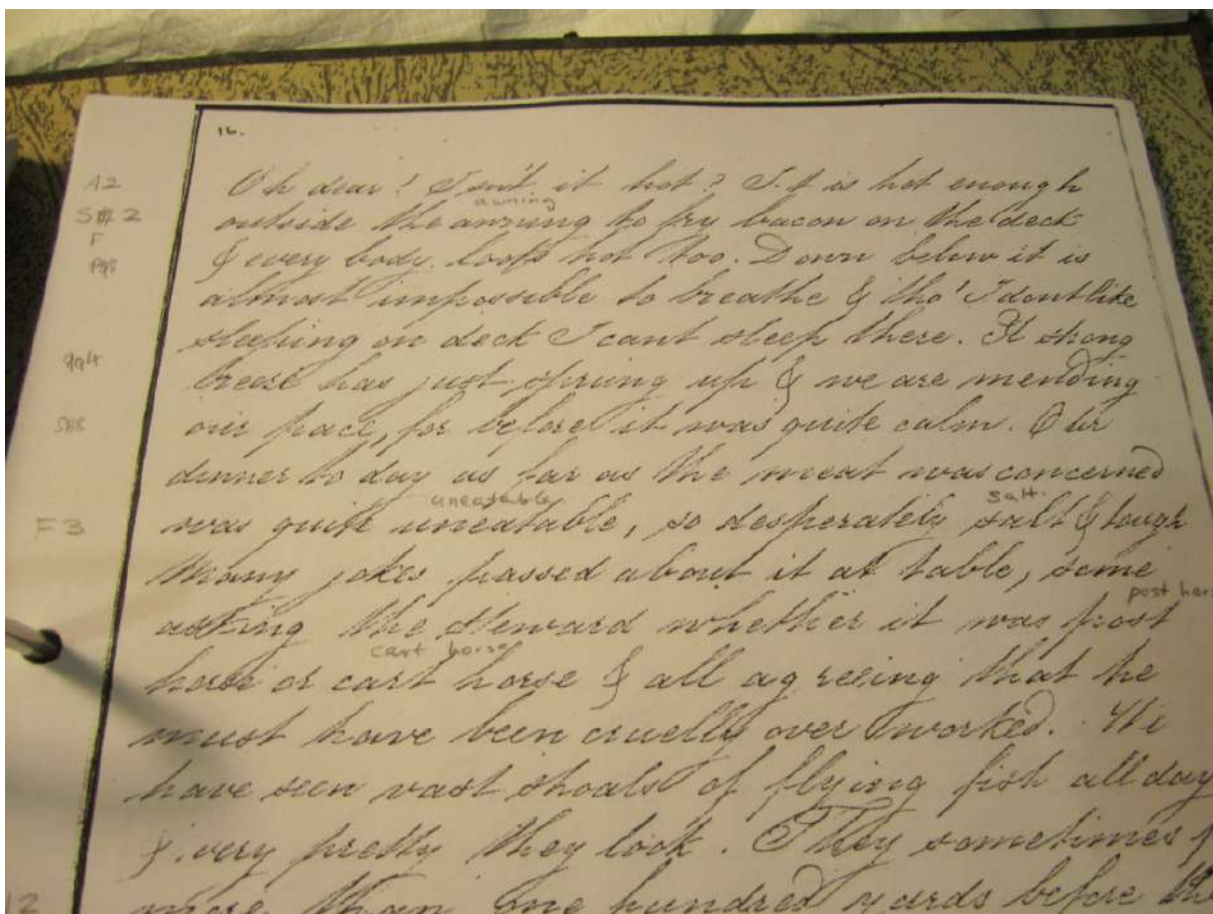 12.
A2
Oh dear! Isn't it hot? It is hot enough
awning
S 2
outside the awning to fry bacon on the deck
F
& every body looks hot too. Down below it is
almost impossible to breathe & tho' I dont like
sleeping on deck I cant sleep there. A strong
breeze has just sprung up & we are mending
our pace, for before it was quite calm. Our
dinner to day as far as the meat was concerned
uneatable salt.
F3
was quite uneatable, so desperately salt & tough
Many jokes passed about it at table, some
post hors
asking the Steward whether it was post
cart horse
horse or cart horse & all agreeing that he
must have been cruelly over worked. We
have seen vast shoals of flying fish all day
& very pretty they look. They sometimes
12
more than one hundred yards before